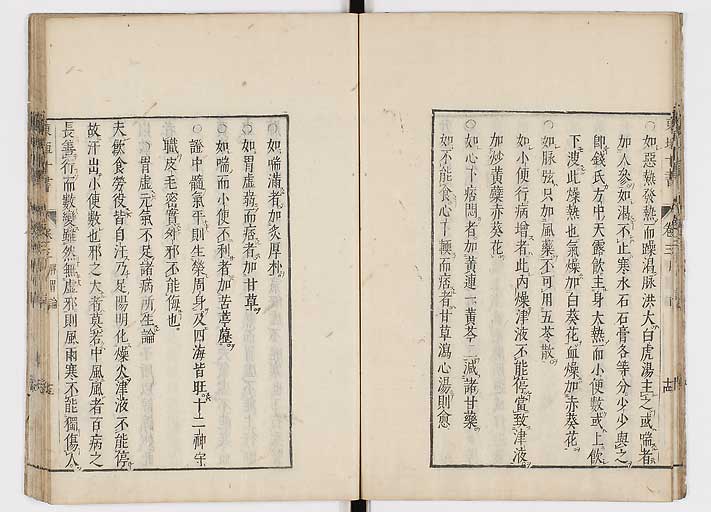 ○如惡熱發熱而躁渴脉洪大白虎湯主之或喘者
加人參如渴不止寒水石石膏各等分少少與之
卽錢氏方中天露飲主身大熱而小便數或上飲
下溲此燥熱也氣燥加白葵花血燥加赤葵花
○如脉弦只加風藥不可用五苓散
如小便行病增者此內燥津液不能停當致津液
加炒黃蘗赤葵花
○如心下痞悶者加黃連一黃芩三減諸甘藥
○如不能食心下輭而痞者甘草瀉心湯則愈
○如喘滿者加炙厚朴
○如胃虛弱而痞者加甘草
○如喘而小便不利者加苦葶藶
○證中髓氣平則生榮周身及四海皆旺十二神守
職皮毛密實外邪不能侮也
○胃虛元氣不足諸病所生論
夫飲食勞役皆自汗乃足陽明化燥火津液不能停
故汗出小便數也邪之大者莫若中風風者百病之
長善行而數變雖然無虛邪則風雨寒不能獨傷人